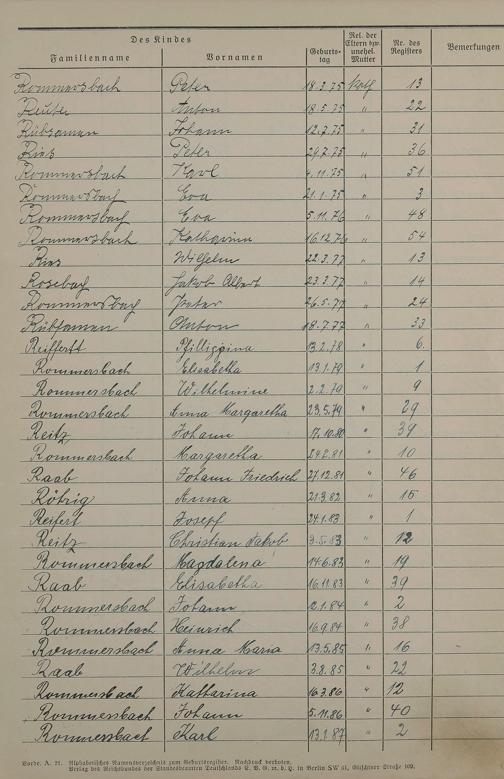 Des Kindes
Familienname Vornamen Geburts-tag Rel. der Eltern bzw. unehel. Mutter Nr. des Registers Bemerkungen
Rommersbach Peter 18.3.75 kath 13
Reuter Anton 18.5.75 " 22
Rübsamen Johann 12.7.75 " 31
Ries Peter 24.7.75 " 36
Rommersbach Karl 4.11.75 " 51
Rommersbach Eva 21.1.75 " 3
Rommersbach Eva 5.11.76 " 48
Rommersbach Katharina 16.12.76 " 54
Ries Wilhelm 22.3.77 " 13
Rosebach Jakob Albert 23.3.77 " 14
Rommersbach Peter 26.5.77 " 24
Rübsamen Anton 18.7.77 " 33
Reifferft Philippina 13.2.78 " 6.
Rommersbach Elisabetha 13.1.79 " 1
Rommersbach Wilhelmine 2.2.79 " 9
Rommersbach Anna Margaretha 23.5.79 " 29
Reitz Johann 17.10.80 " 39
Rommersbach Margaretha 24.2.81 " 10
Raab Johann Friedrich 27.12.81 " 46
Röhrig Anna 21.3.82 " 15
Reifert Josepf 24.1.83 " 1
Reitz Christian Jakob 3.5.83 " 12
Rommersbach Magdalena 14.6.83 " 19
Raab Elisabetha 16.11.83 " 39
Rommersbach Johann 12.1.84 " 2
Rommersbach Heinrich 16.9.84 " 38
Rommersbach Anna Maria 13.5.85 " 16
Raab Wilhelm 3.8.85 " 22
Rommersbach Kattarina 16.3.86 " 12
Rommersbach Johann 5.11.86 " 40
Rommersbach Karl 13.1.87 " 2
Vordr. A. 21. Alphabetisches Namensverzeichnis zum Geburtsregister. Nachdruck verboten.
Verlag des Reichsbundes der Standesbeamten Deutschlands E. V. G. m. b. H. in Berlin SW 61, Gitschiner Straße 109.